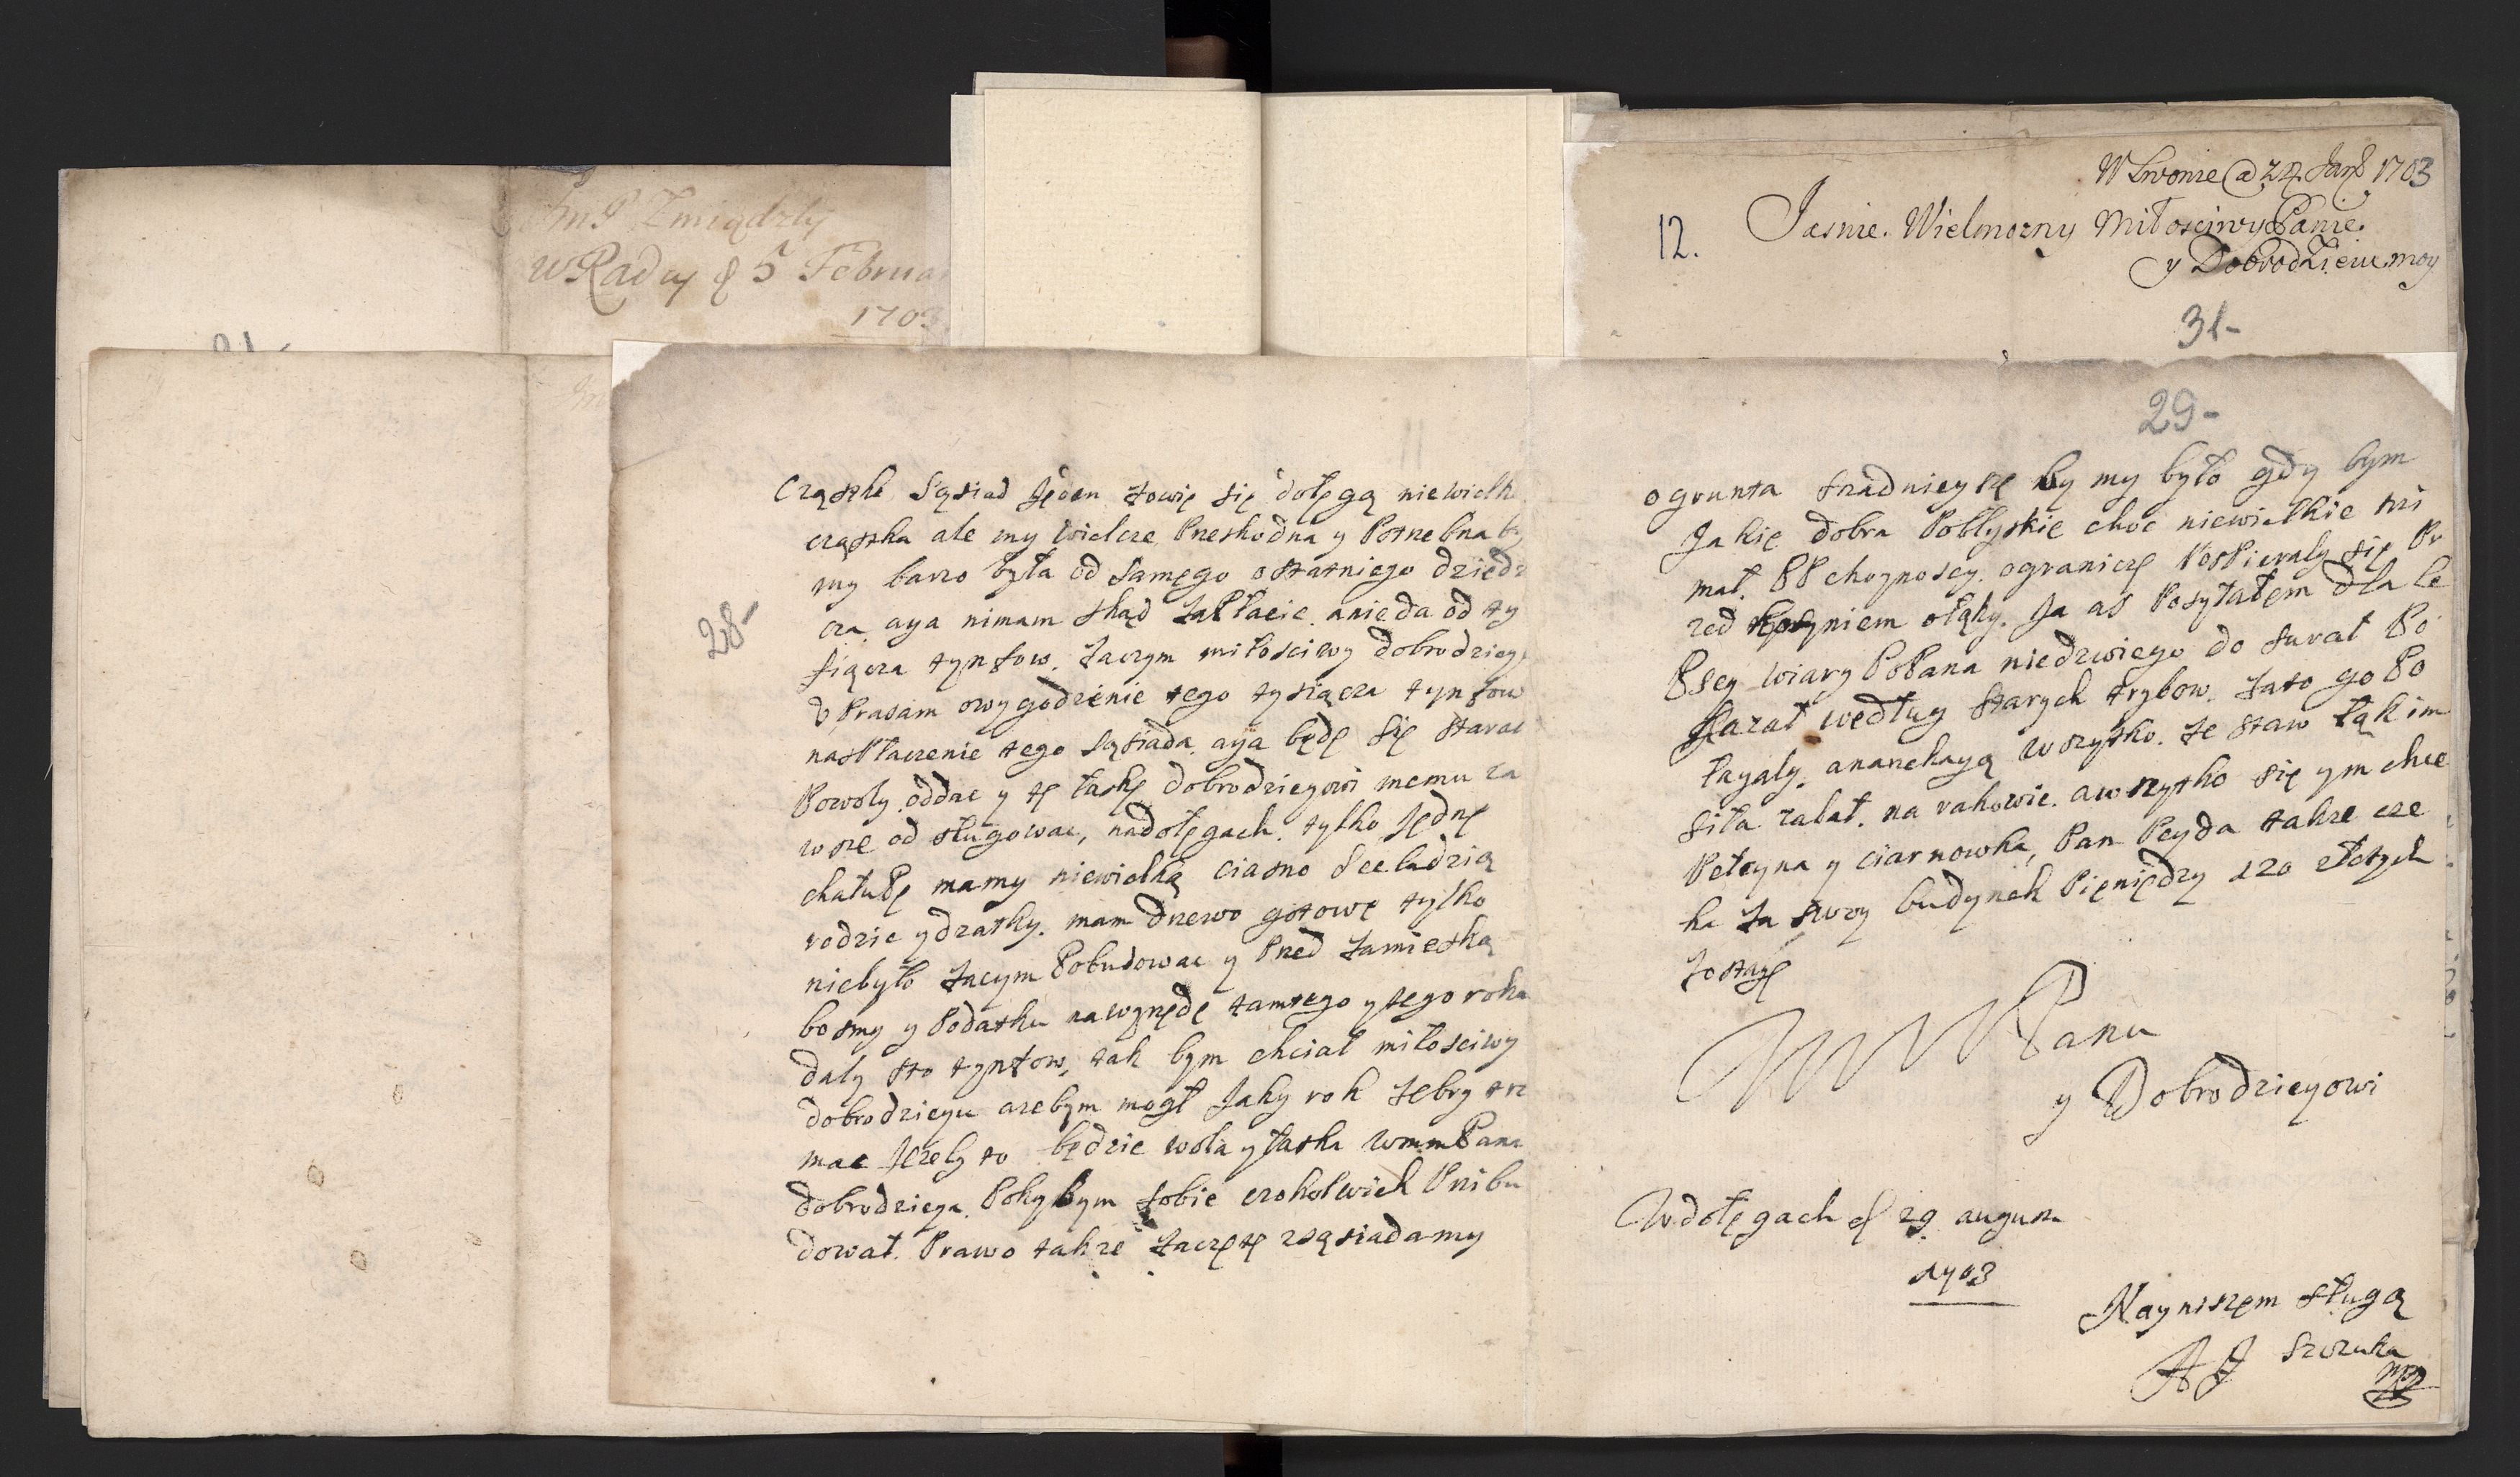 JmP Zmiądzky
w Radcy d 5 Februar
1703
W Lwowie @ 24 Janř 1703
12. Jasnie Wielmozny Miłosciwy Panie
y Dobrodzieiu moy
31-
28-
Cząszkę Sąsiad Jeden zowię się dołęgą niewielk
cząszka ale my wielcze Preskodna y Potrebna by
my barzo była od samęgo ostatniego dziedz
cza aya nimam skąd zaPłacic anieda od ty
siącza tynfow. zaczym miłosciwy dobrodziey
uPrasam owygodzenie tego tysiącza tynfow
nasPłaczenie tego sąsiada aya będę się starac
Powoly oddac y tę łaskę dobrodzieyowi memu za
wsze odsługowac, nadołęgach tylko Jędnę
chałuPę mamy niewielką ciasno sceladzią
rodzic ydzatky. mam drzewo gotowe tylko
niebyło zacym Pobudowac y Pred zamieską
bosmy y Podatku nawyrzędę tamtego ytego roku
daly sto tynfow, tak bym chciał miłosciwy
dobrodzieyu azebym mogł Jaky rok zebry trz
mac Jezely to będzie wola y łaska wmmPana
dobrodzieya. Pokybym sobie czokolwiek Pribu
dował. Prawo takze zaczętę zsąsiadamy
29-
ogrunta snadnieysze by my było gdy bym
Jakie dobra Poblyskie choc niewielkie tri
mał. PP choynoscy ograniczę rosPieraly się Pr
zed niem ołąky. Ja as Posyłałem dla le
Pscy wiary PoPana niedzwiego do surat Po
kazał według starych trybow. zato go Po
łayaly. ananekayą wszytko. ze staw łąk im
siła zalał. na rakowie. awszytko się ym chce
Pełcyna y ciarnowka, Pan Peyda takze cze
ka za swoy budynek Pięniędzy 120 złotych
zostaię
WMMPanu
y Dobrodzieyowi
Wdołęgach d 29 august
1703
Nayniszem sługą
A J Szczuka
mp